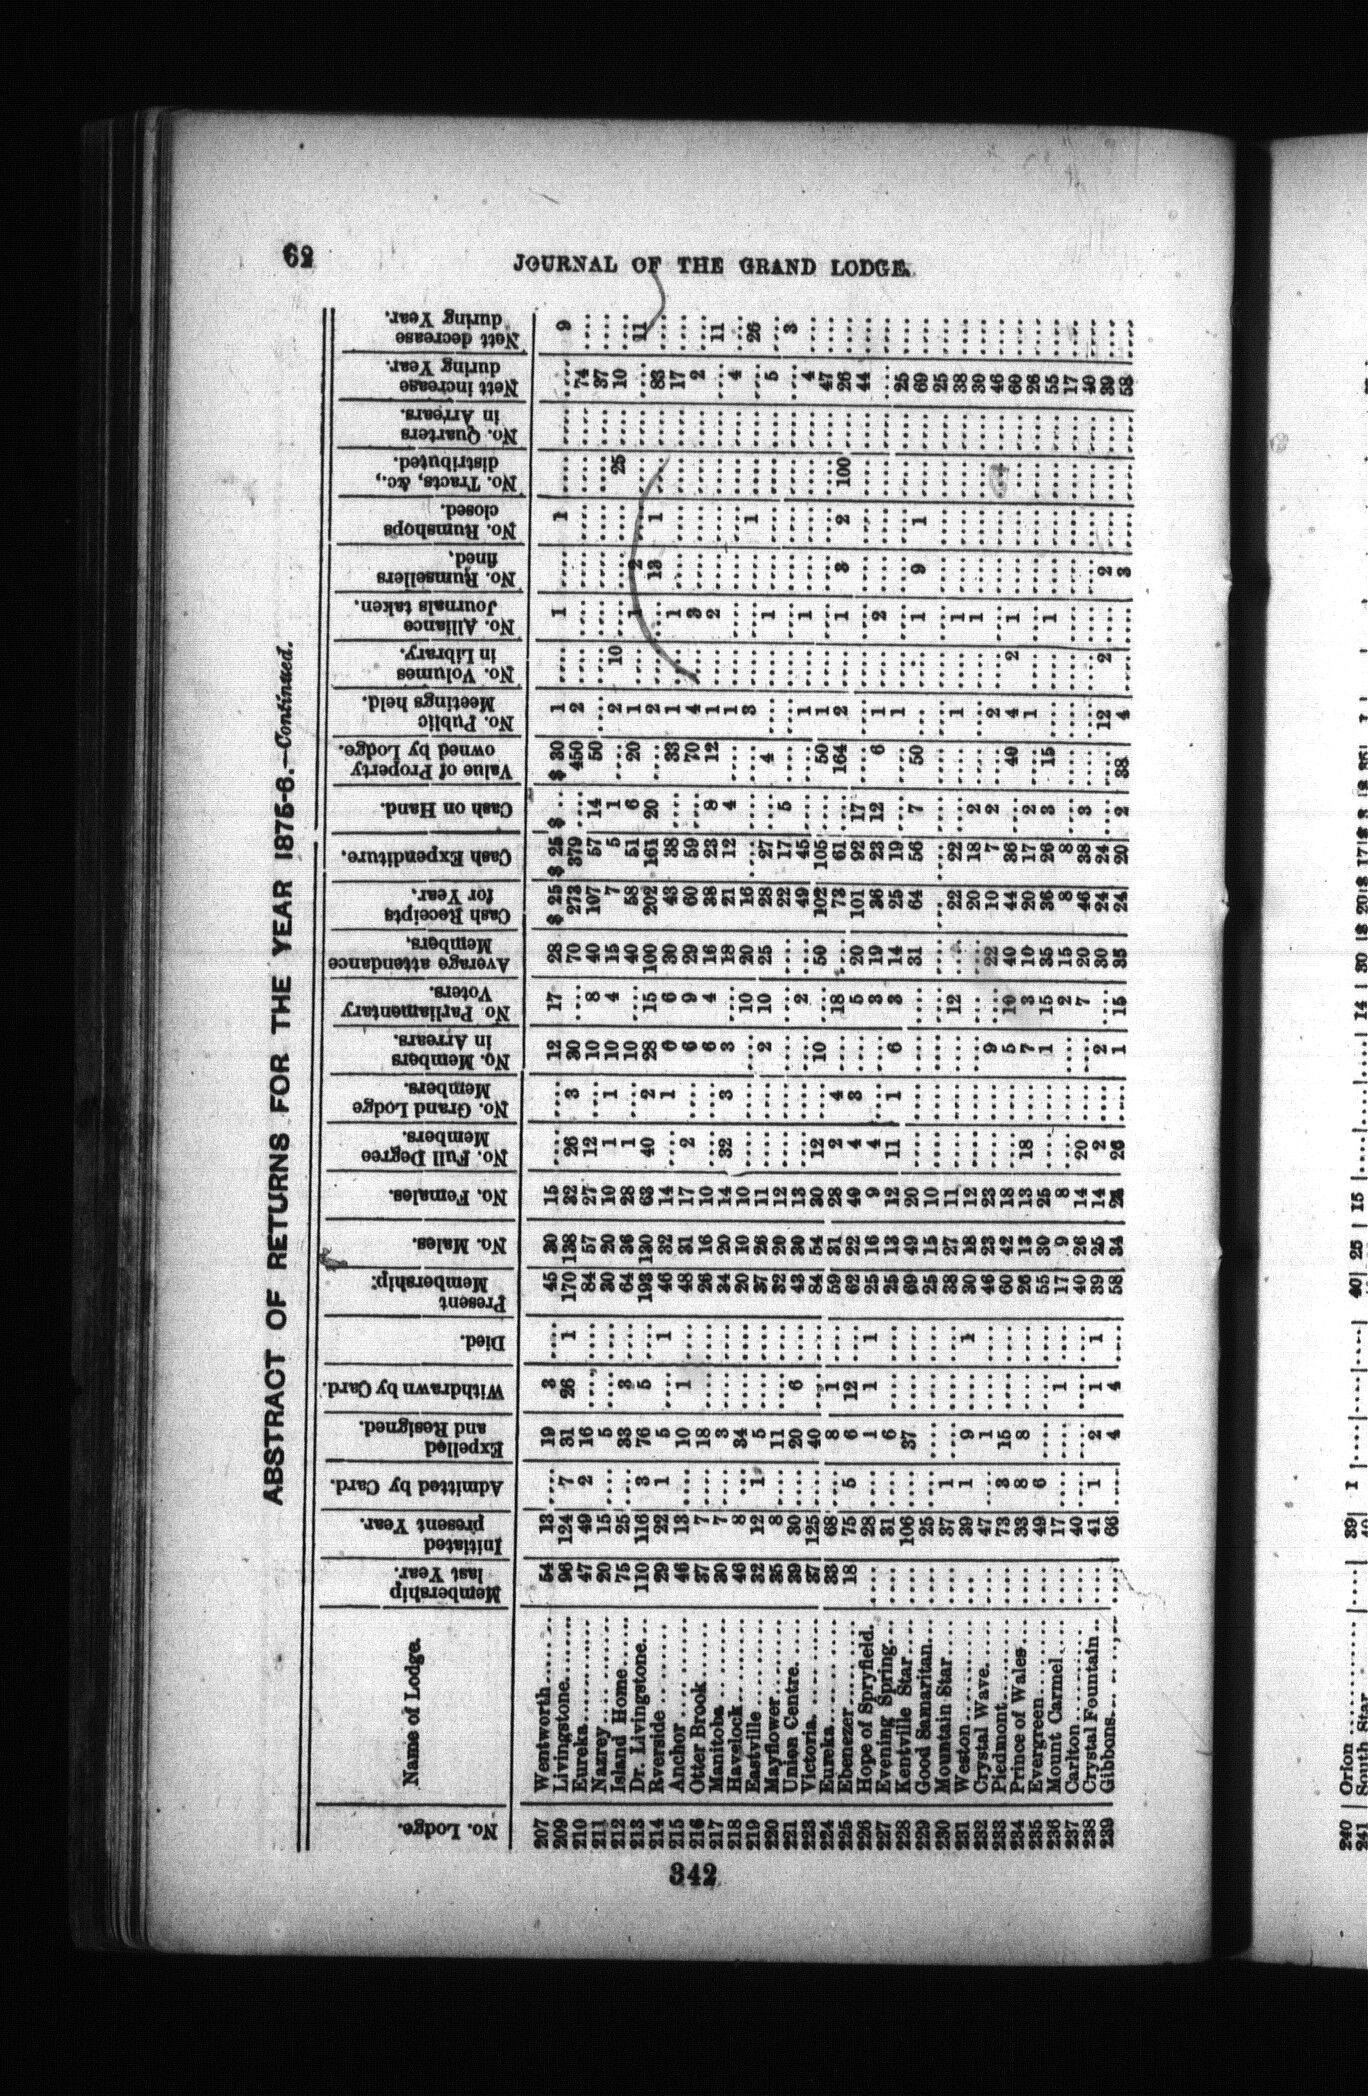 62
JOURNAL OF THE GRAND LODGE.
ABSTRACT OF RETURNS FOR THE YEAR 1875-6.—Continued.
No. Lodge. Name of Lodge. Membership last Year. Initiated present Year. Admitted by Card. Expelled and Resigned. Withdrawn by Card. Died. Present Membership. No. Males. No. Females. No. Full Degree Members. No. Grand Lodge Members. No. Members in Arrears. No Parliamentary Voters. Average attendance Members. Cash Receipts for Year. Cash Expenditure. Cash on Hand. Value of Property owned by Lodge. No. Public Meetings held. No. Volumes in Library. No. Alliance Journals taken. No. Rumsellers fined. No. Rumshops closed. No. Tracts, &c., distributed. No. Quarters in Arrears. Nett increase during Year. Nett decrease during Year.
207 Wentworth 54 13 .... 19 3 .... 45 30 15 .... .... 12 17 28 $ 25 $ 25 $ .... $ 30 1 .... 1 .... 1 .... .... .... 9
209 Livingstone 96 124 7 31 26 1 170 138 32 26 3 30 .... 70 273 379 .... 450 2 .... .... .... .... .... .... 74 ....
210 Eureka 47 49 2 16 .... .... 84 57 27 12 .... 10 8 40 107 57 14 50 .... .... .... .... .... .... .... 37 ....
211 Nazrey 20 15 .... 5 .... .... 30 20 10 1 1 10 4 15 7 5 1 .... 2 10 .... .... .... 25 .... 10 ....
212 Island Home 75 25 .... 33 3 .... 64 36 28 1 .... 10 .... 40 58 51 6 20 1 .... 1 2 .... .... .... .... 11
213 Dr. Livingstone 110 116 3 76 5 .... 193 130 63 40 2 28 15 100 202 161 20 .... 2 .... .... 13 1 .... .... 83 ....
214 Rverside 29 22 1 5 .... 1 46 32 14 .... 1 6 6 30 43 38 .... 33 1 .... 1 .... .... .... .... 17 ....
215 Anchor 46 13 .... 10 1 .... 48 31 17 2 .... 6 9 29 60 59 .... 70 4 .... 3 .... .... .... .... 2 ....
216 Otter Brook 37 7 .... 18 .... .... 26 16 10 .... .... 6 4 16 38 23 8 12 1 .... 2 .... .... .... .... .... 11
217 Manitoba 30 7 .... 3 .... .... 34 20 14 32 3 3 .... 18 21 12 4 .... 1 .... .... .... .... .... .... 4 ....
218 Havelock 46 8 .... 34 .... .... 20 10 10 .... .... .... 10 20 16 .... .... .... 3 .... .... .... 1 .... .... .... 26
219 Eastville 32 12 1 5 .... .... 37 26 11 .... .... 2 10 25 28 27 .... 4 .... .... 1 .... .... .... .... 5 ....
220 Mayflower 35 8 .... 11 .... .... 32 20 12 .... .... .... .... .... 22 17 5 .... .... .... .... .... .... .... .... .... 3
221 Union Centre 39 30 .... 20 6 .... 43 30 13 .... .... .... 2 .... 49 45 .... .... 1 .... 1 .... .... .... .... 4 ....
223 Victoria 37 125 .... 40 .... .... 84 54 30 12 .... 10 .... 50 102 105 .... 50 1 .... .... .... .... .... .... 47 ....
224 Eureka 33 68 .... 8 1 .... 59 31 28 2 4 .... 18 .... 73 61 .... 164 2 .... 1 3 2 100 .... 26 ....
225 Ebenezer 18 75 5 6 12 .... 62 22 40 4 3 .... 5 20 101 92 17 .... .... .... .... .... .... .... .... 44 ....
226 Hope of Spryfield .... 28 .... 1 1 1 25 16 9 4 .... .... 3 19 36 23 12 6 1 .... 2 .... .... .... .... .... ....
227 Evening Spring .... 31 .... 6 .... .... 25 13 12 11 1 6 3 14 25 19 .... .... 1 .... .... .... .... .... .... 25 ....
228 Kentville Star .... 106 .... 37 .... .... 69 49 20 .... .... .... .... 31 64 56 7 50 .... .... 1 9 1 .... .... 69 ....
229 Good Samaritan .... 25 .... .... .... .... 25 15 10 .... .... .... .... .... .... .... .... .... .... .... .... .... .... .... .... 25 ....
230 Mountain Star .... 37 1 .... .... .... 38 27 11 .... .... .... 12 .... 22 22 .... .... 1 .... 1 .... .... .... .... 38 ....
231 Weston .... 39 1 9 .... 1 30 18 12 .... .... .... .... .... 20 18 2 .... .... .... 1 .... .... .... .... 30 ....
232 Crystal Wave .... 47 .... 1 .... .... 46 23 23 .... .... 9 .... 22 10 7 2 .... 2 .... .... .... .... .... .... 46 ....
233 Piedmont .... 73 3 15 .... .... 60 42 18 .... .... 5 10 40 44 36 .... 40 4 2 1 .... .... .... .... 60 ....
234 Prince of Wales .... 33 8 8 .... .... 26 13 13 18 .... 7 3 10 20 17 2 .... 1 .... .... .... .... .... .... 26 ....
235 Evergreen .... 49 6 .... .... .... 55 30 25 .... .... 1 15 35 36 26 3 15 .... .... 1 .... .... .... .... 55 ....
236 Mount Carmel .... 17 .... .... 1 .... 17 9 8 .... .... .... 2 15 8 8 .... .... .... .... .... .... .... .... .... 17 ....
237 Carlton .... 40 .... .... .... .... 40 26 14 20 .... .... 7 20 46 38 3 .... .... .... .... .... .... .... .... 40 ....
238 Crystal Fountain .... 41 1 2 1 1 39 25 14 2 .... 2 .... 30 24 24 .... .... 12 2 .... 2 .... .... .... 39 ....
239 Gibbons .... 66 .... 4 4 .... 58 34 24 26 .... 1 15 35 24 20 2 38 4 .... .... 3 .... .... .... 58 ....
342
240 Orion
241 South Star